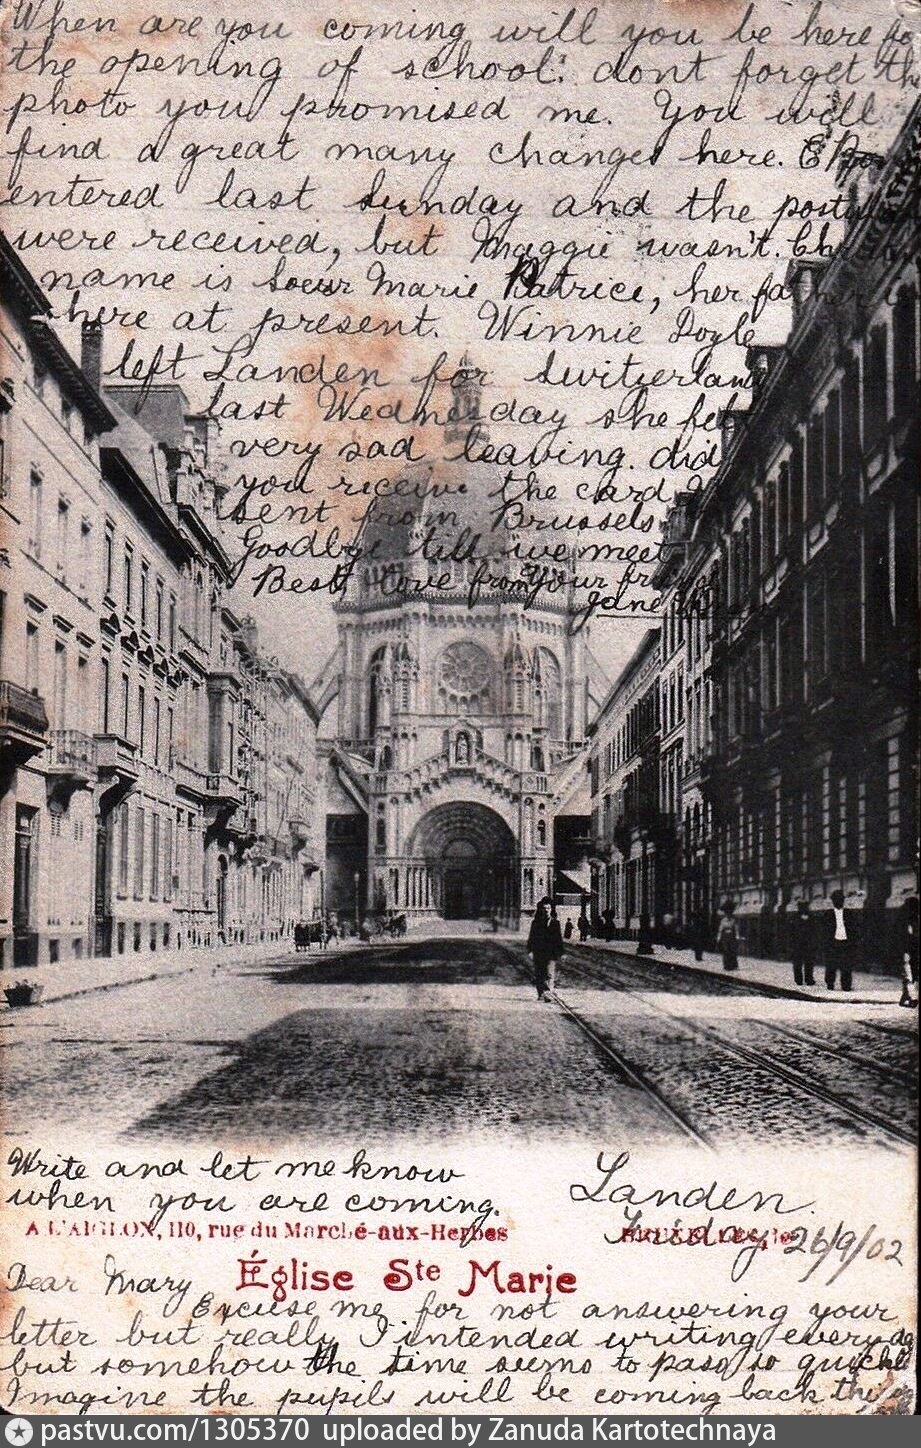 When are you coming will you be here
the opening of school. dont forget
photo you promised me. You will
find a great many changes here.
entered last Sunday and the
were received, but Maggie wasn't.
name is Soeur Marie Patrice, her father is
here at present. Winnie Doyle
left Landen for Switzerland
last Wednesday she felt
very sad leaving. did
you receive the card I
sent from Brussels
Goodbye till we meet
Best love from your friend
Jane
Write and let me know
when you are coming.
A L'AIGLON, 110, rue du Marché-aux-Herbes BRUXELLES
Landen
Friday 26/9/02
Église Ste Marie
Dear Mary
Excuse me for not answering your
letter but really I intended writing
but somehow the time seems to pass so
Imagine the pupils will be coming back
pastvu.com/1305370 uploaded by Zanuda Kartotechnaya